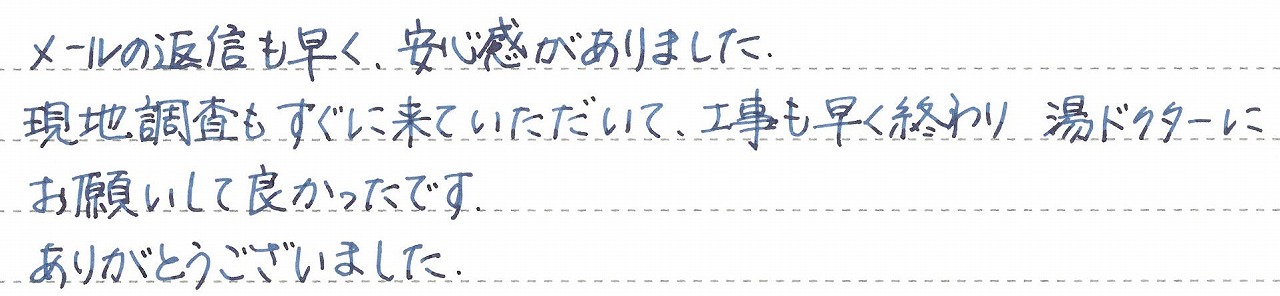 メールの返信も早く、安心感がありました.
現地調査もすぐに来ていただいて、工事も早く終わり 湯ドクターに
お願いして良かったです.
ありがとうございました.